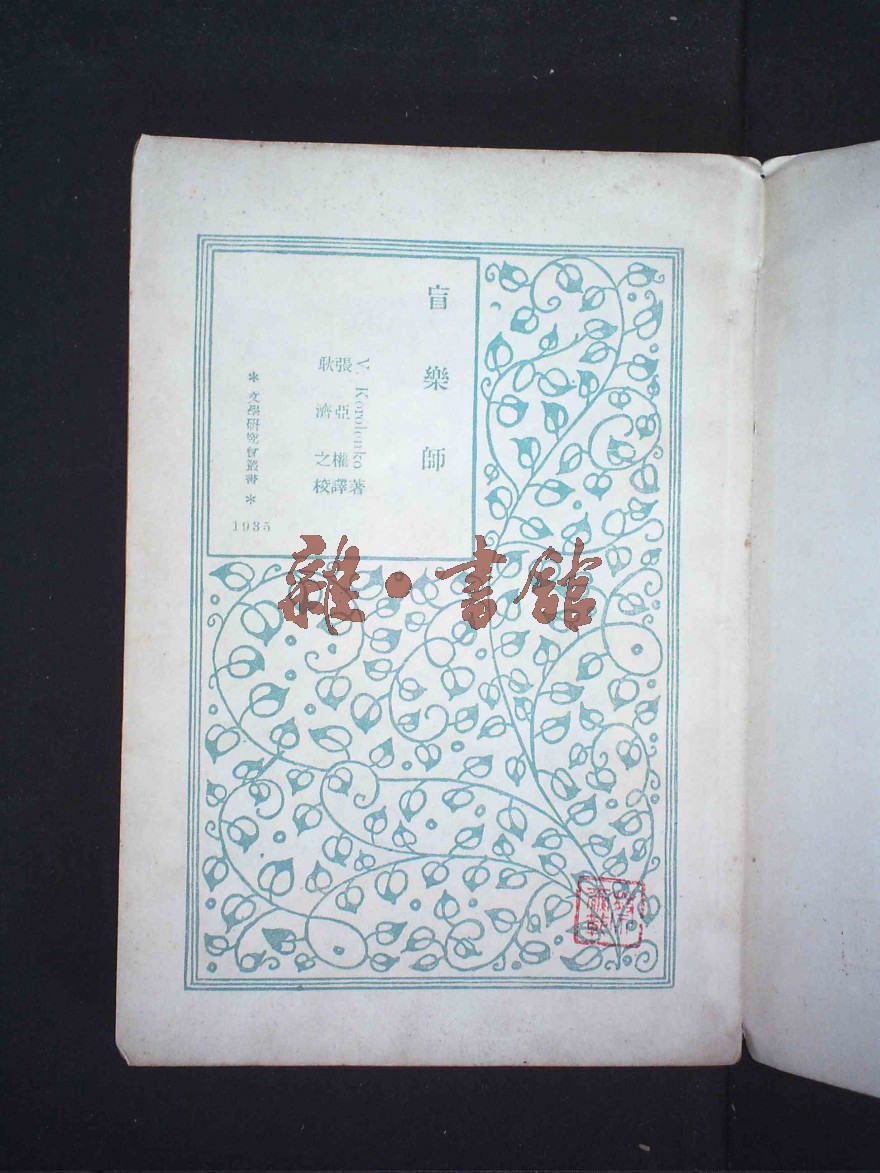 盲樂師
V. Korolenko 著
張亞權譯
耿濟之校
* 文學研究會叢書 *
1935
雜·書館